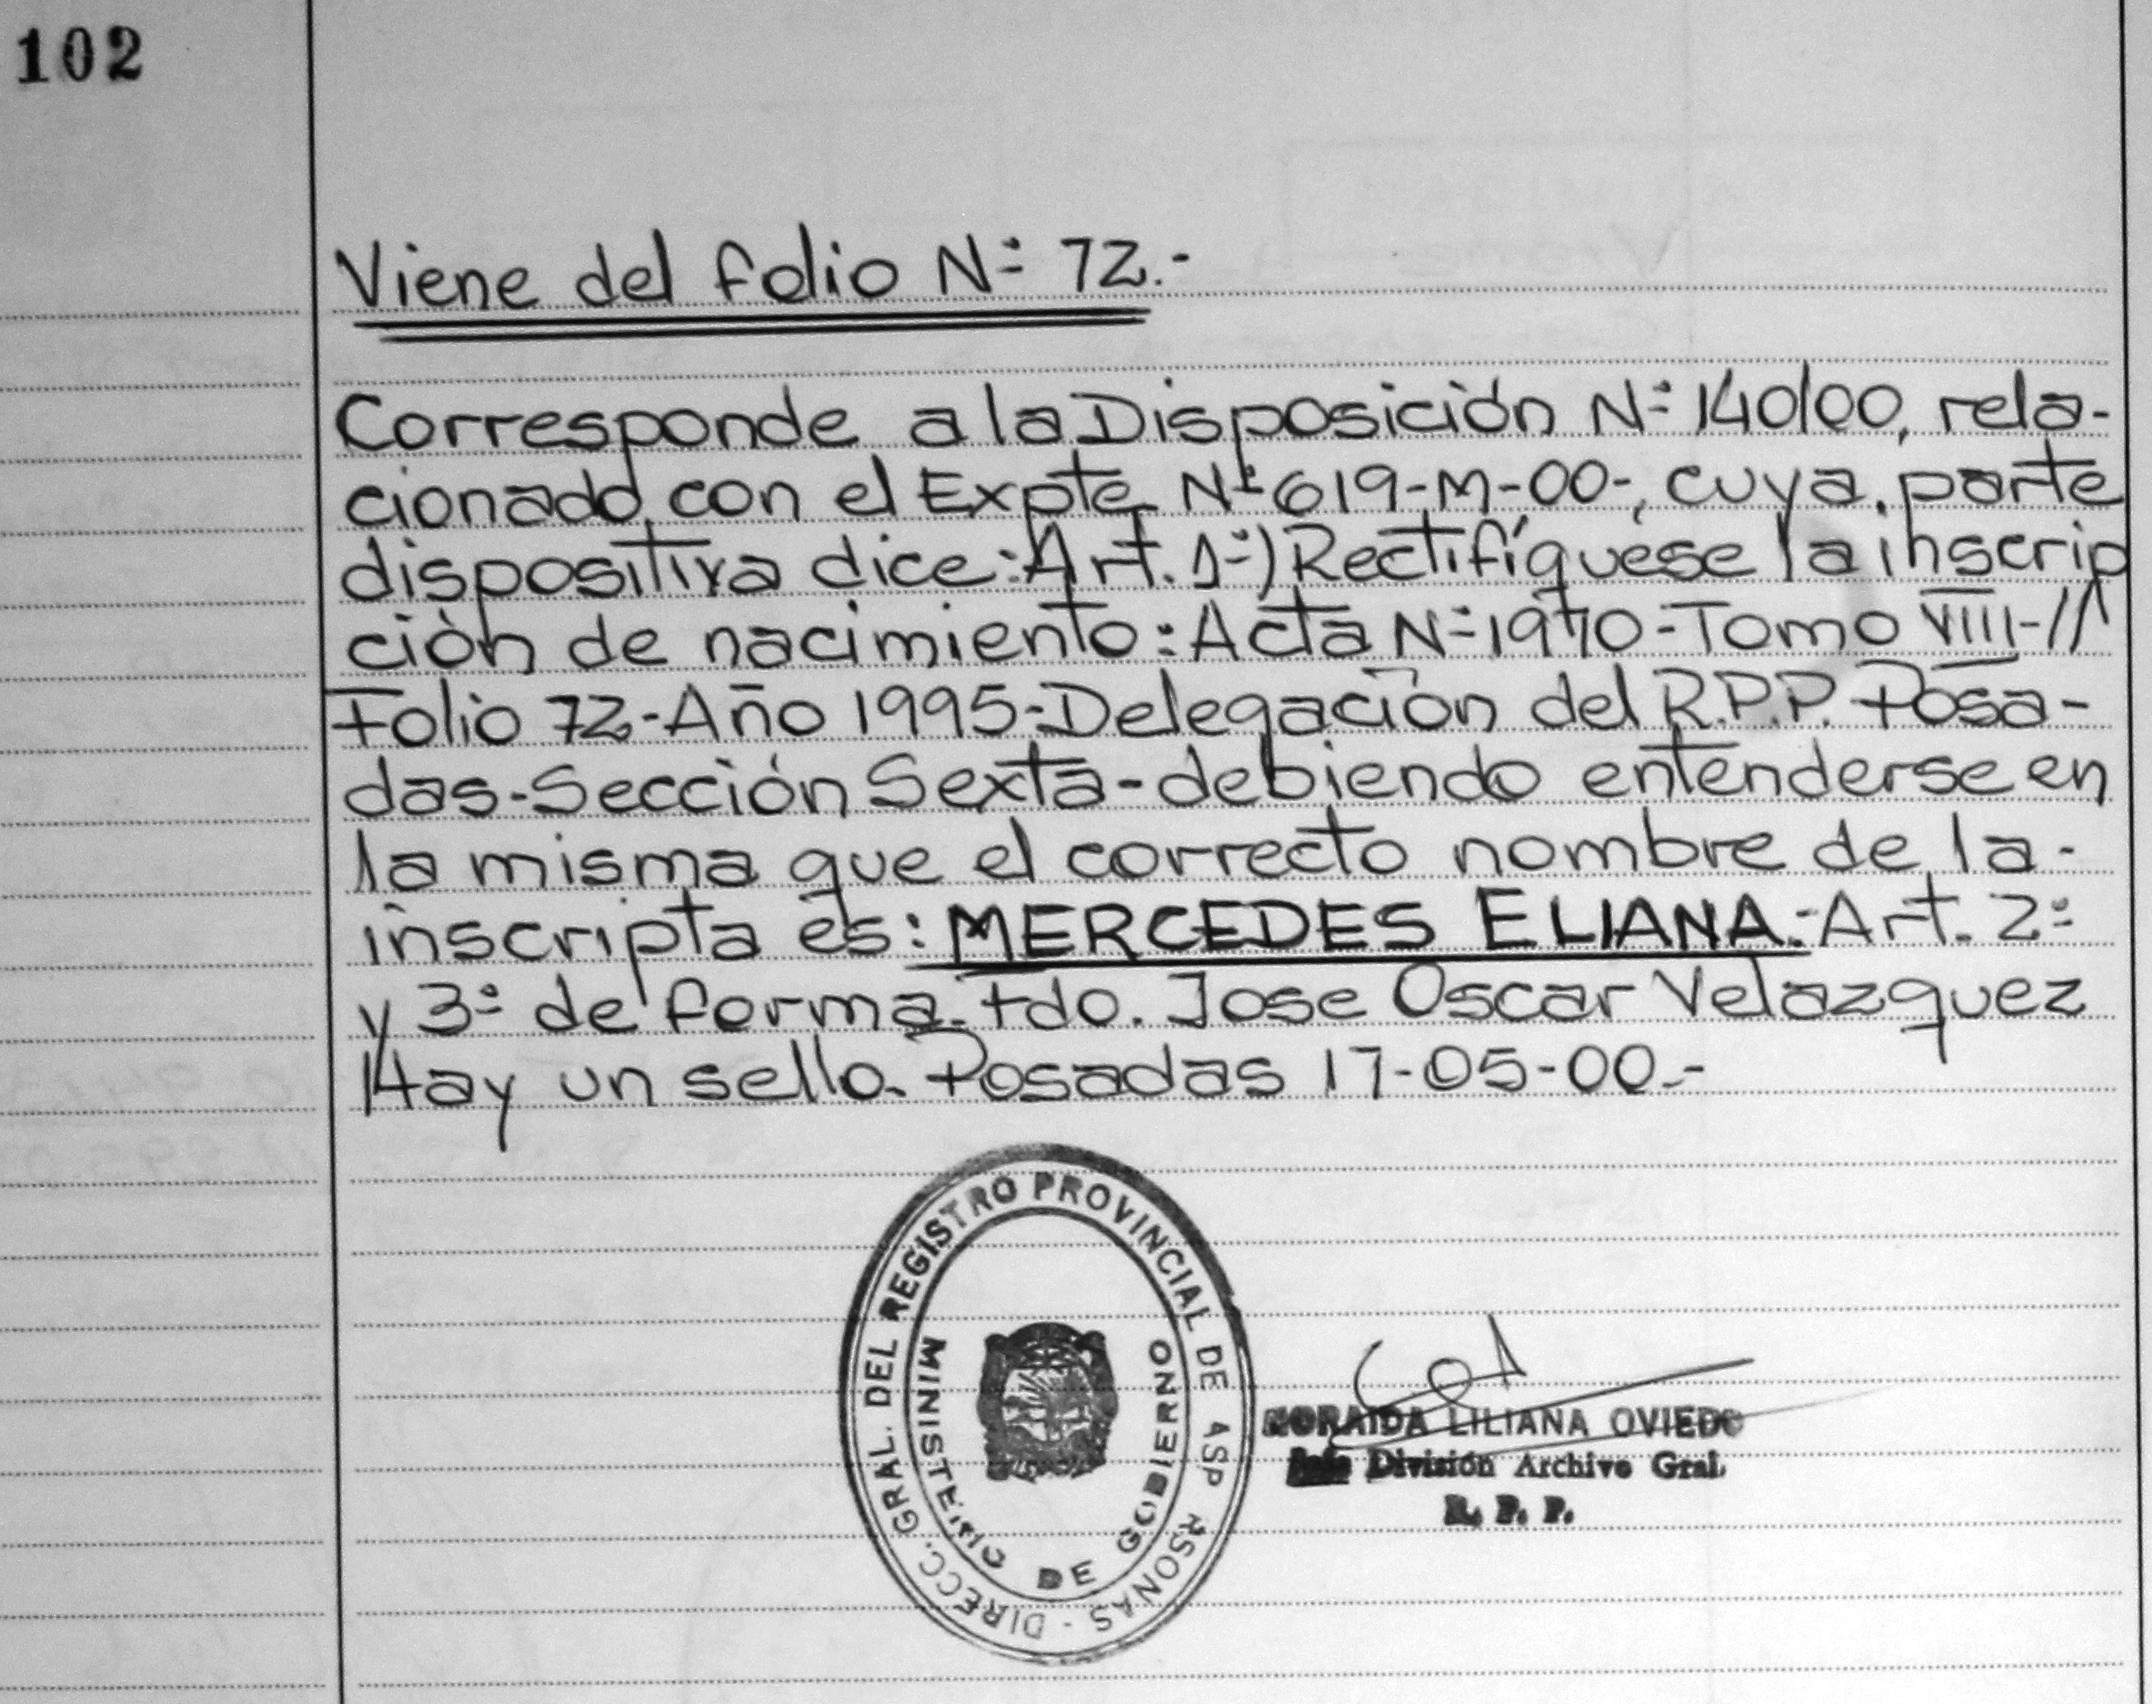 102
Viene del folio Nº 72.-
Corresponde a la Disposición Nº 140/00, rela-
cionado con el Expte Nº 619-M-00-, cuya parte
dispositiva dice: Art. 1º) Rectifíquese la inscrip
ción de nacimiento: Acta Nº 1970-Tomo VIII-//
Folio 72-Año 1995-Delegación del R.P.P. Posa-
das-Sección Sexta-debiendo entenderse en
la misma que el correcto nombre de la-
inscripta es: MERCEDES ELIANA.-Art. 2º
y 3º de forma. Fdo. Jose Oscar Velazquez
Hay un sello. Posadas 17-05-00.-
DIRECC. GRAL. DEL REGISTRO PROVINCIAL DE
MINISTERIO DE GOBIERNO
NORAIDA LILIANA OVIEDO
Jefe División Archivo Gral.
R. P. P.